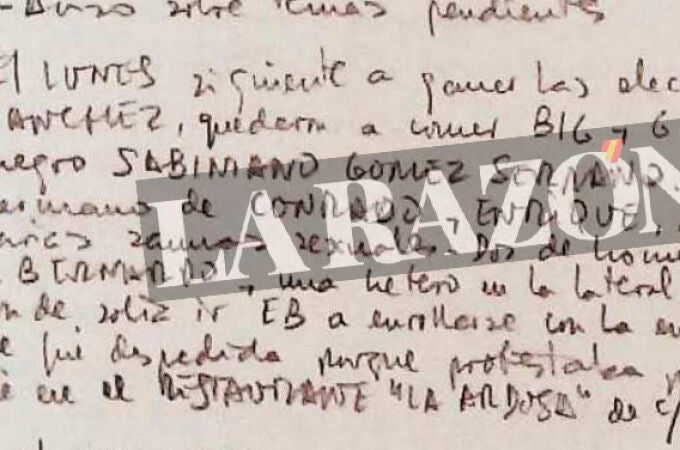 -Aviso sobre temas pendientes
El LUNES siguiente a ganar las elec
ANCHEZ, quedaron a comer BIG y G
negro SABINIANO GOMEZ SERRANO.
ermano de CONRADO y ENRIQUE,
arias saunas sexuales. Dos de
BERNARDO, y una hetero en la lateral
de solía ir EB a enrollarse con la
fue despedida porque protestaba
en el RESTAURANTE "LA ARDOSA" de c/
LA RAZÓN